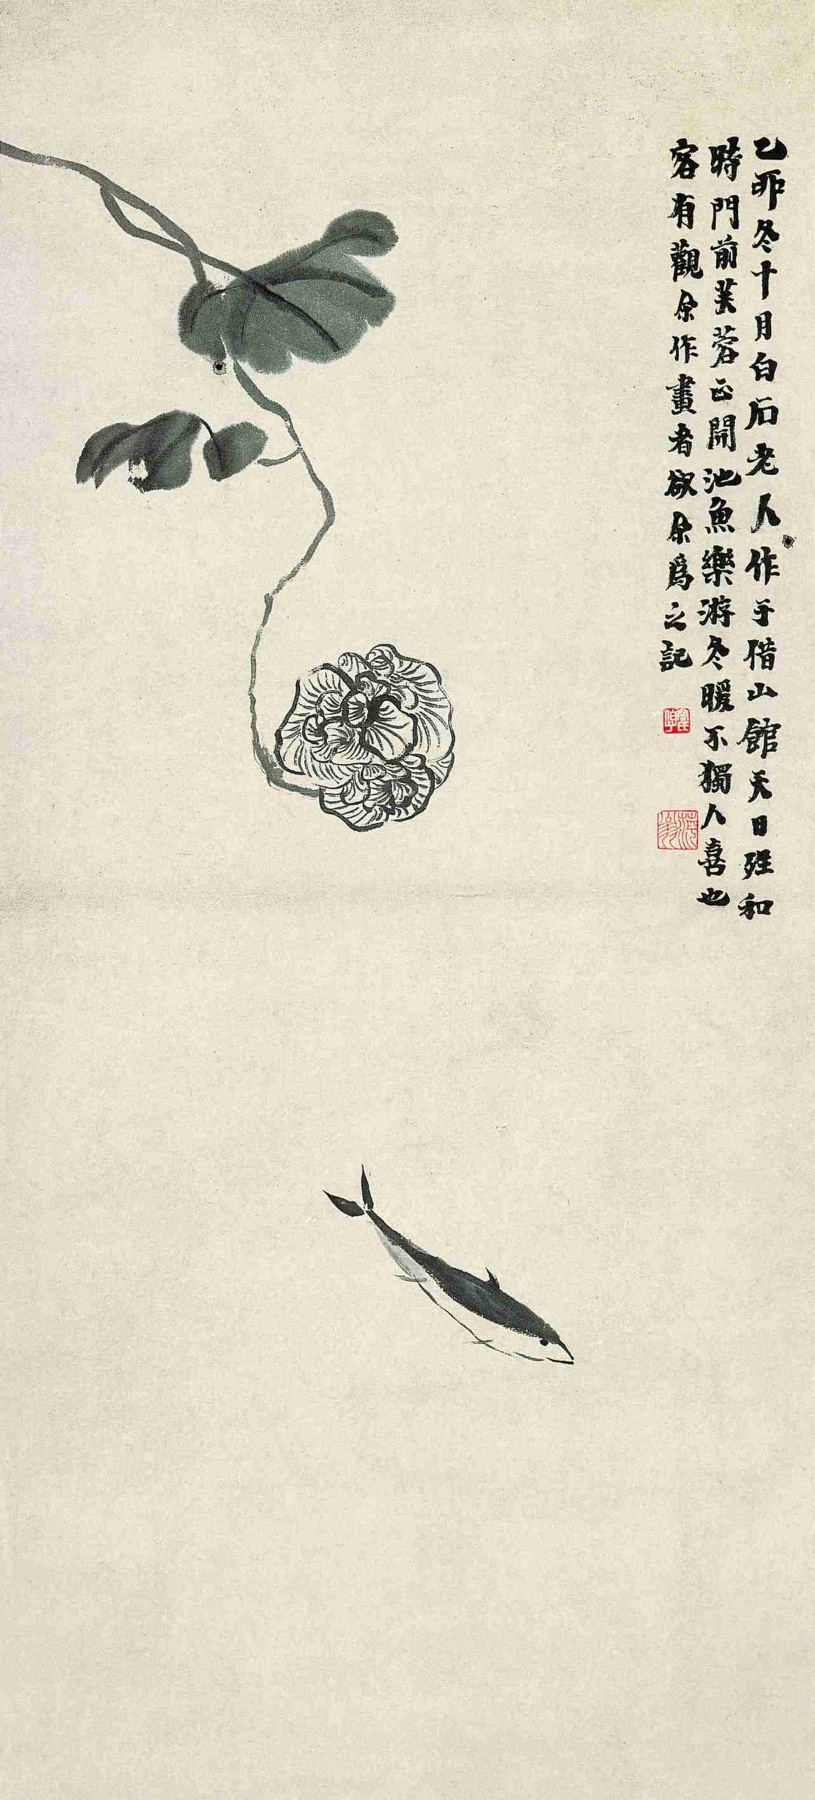 乙丣冬十月白石老人作于借山館天日晴和
時門前芙蓉正開池魚樂游冬暖不獨人喜也
客有觀余作畫者欲余爲之記